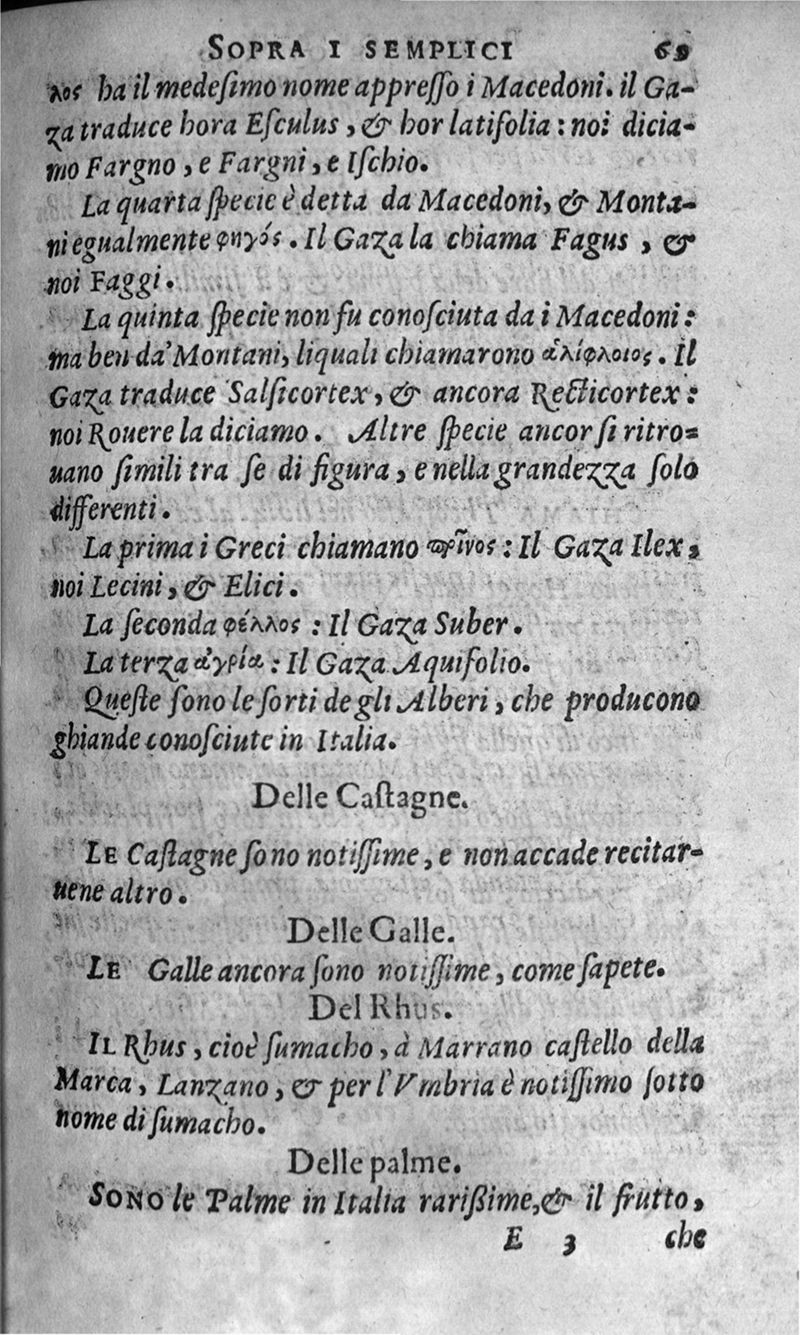 SOPRA I SEMPLICI 69
λος ha il medeſimo nome appreſſo i Macedoni. il Ga-
za traduce hora Eſculus, & hor latifolia: noi dicia-
mo Fargno, e Fargni, e Iſchio.
La quarta ſpecie è detta da Macedoni, & Monta-
ni egualmente φηγός. Il Gaza la chiama Fagus, &
noi Faggi.
La quinta ſpecie non fu conoſciuta da i Macedoni:
ma ben da' Montani, liquali chiamarono ἁλίφλοιος. Il
Gaza traduce Salſicortex, & ancora Recticortex:
noi Rouere la diciamo. Altre ſpecie ancor ſi ritro-
uano ſimili tra ſe di figura, e nella grandezza ſolo
differenti.
La prima i Greci chiamano πρῖνος: Il Gaza Ilex,
noi Lecini, & Elici.
La ſeconda φέλλος: Il Gaza Suber.
La terza ἀγρία: Il Gaza Aquifolio.
Queſte ſono le ſorti de gli Alberi, che producono
ghiande conoſciute in Italia.
Delle Caſtagne.
LE Caſtagne ſono notiſſime, e non accade recitar-
uene altro.
Delle Galle.
LE Galle ancora ſono notiſſime, come ſapete.
Del Rhus.
IL Rhus, cioè ſumacho, à Marrano caſtello della
Marca, Lanzano, & per l'Vmbria è notiſſimo ſotto
nome di ſumacho.
Delle palme.
SONO le Palme in Italia rarißime, & il frutto,
E 3 che